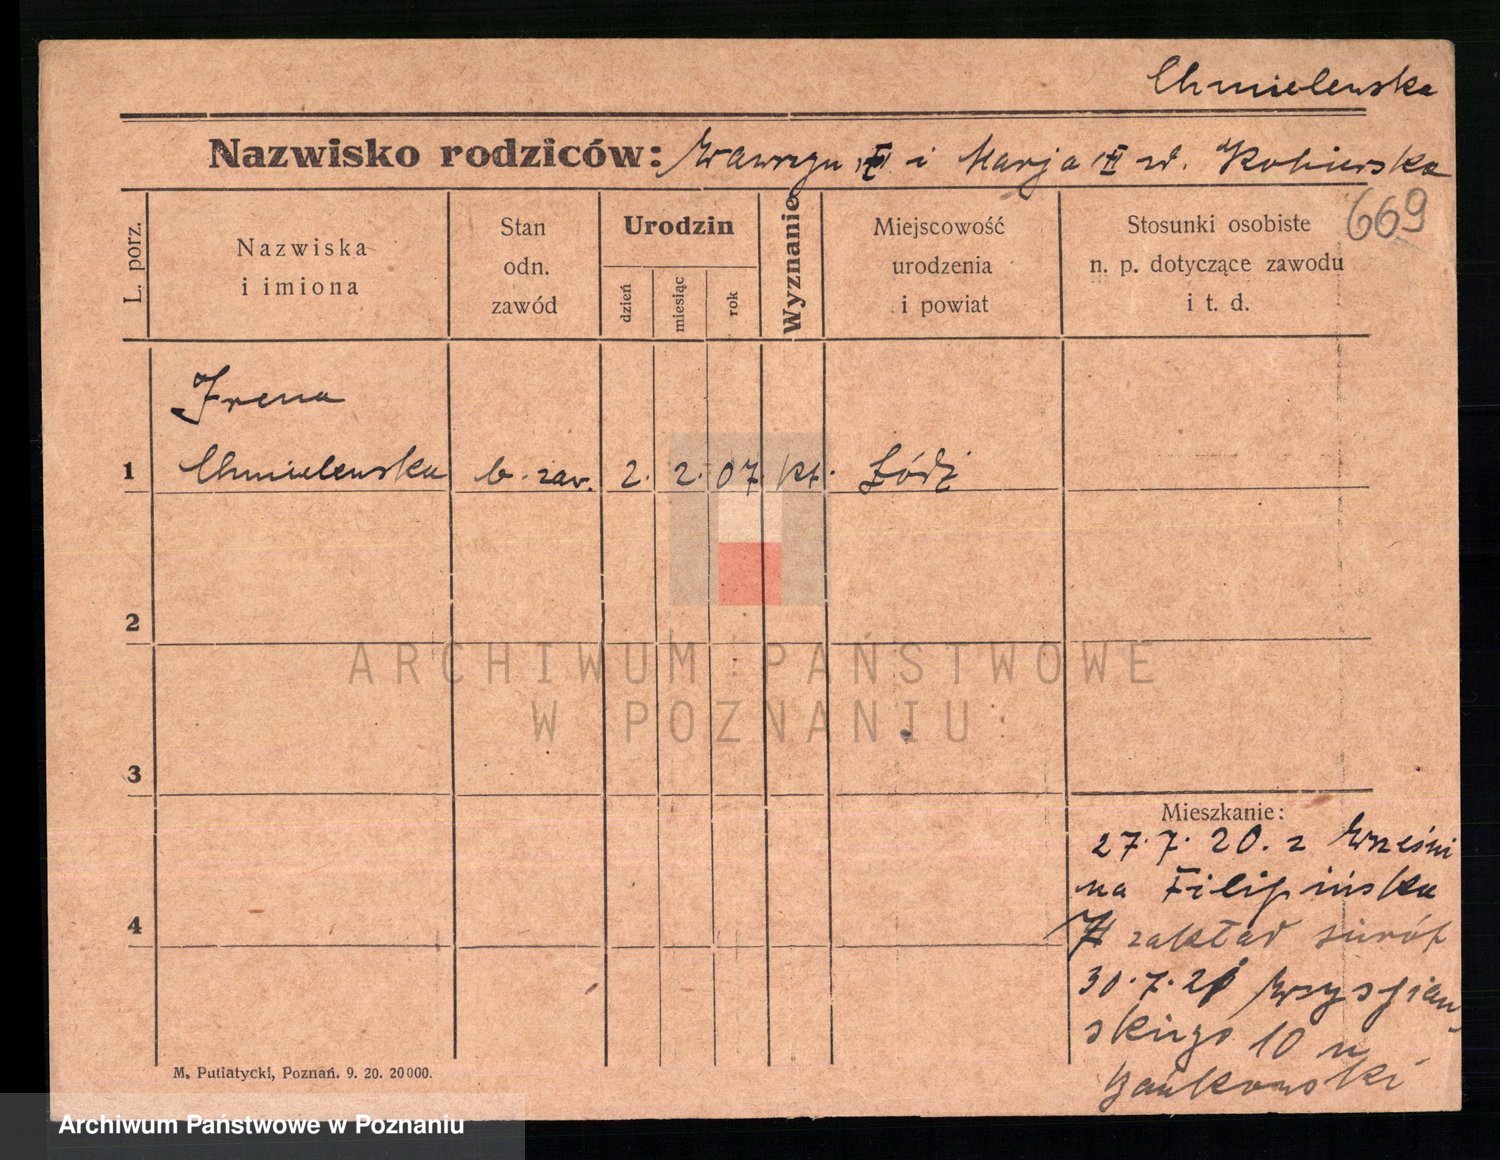 Chmielewska
Nazwisko rodziców: Wawrzyn i Marja zd. Kobierska
669
L. porz.
Nazwiska
i imiona
Stan
odn.
zawód
Urodzin
dzień
miesiąc
rok
Wyznanie
Miejscowość
urodzenia
i powiat
Stosunki osobiste
n. p. dotyczące zawodu
i t. d.
Irena
1 Chmielewska b. zaw. 2. 2. 07 kt. Łódź
2
ARCHIWUM PAŃSTWOWE
W POZNANIU
3
Mieszkanie:
27.7.20. z Wrześni
na Filipińska
4
7 zakład sierót
30.7.21 Wyspiań
skiego 10 u
Jankowski
M. Putiatycki, Poznań. 9. 20. 20000.
Archiwum Państwowe w Poznaniu